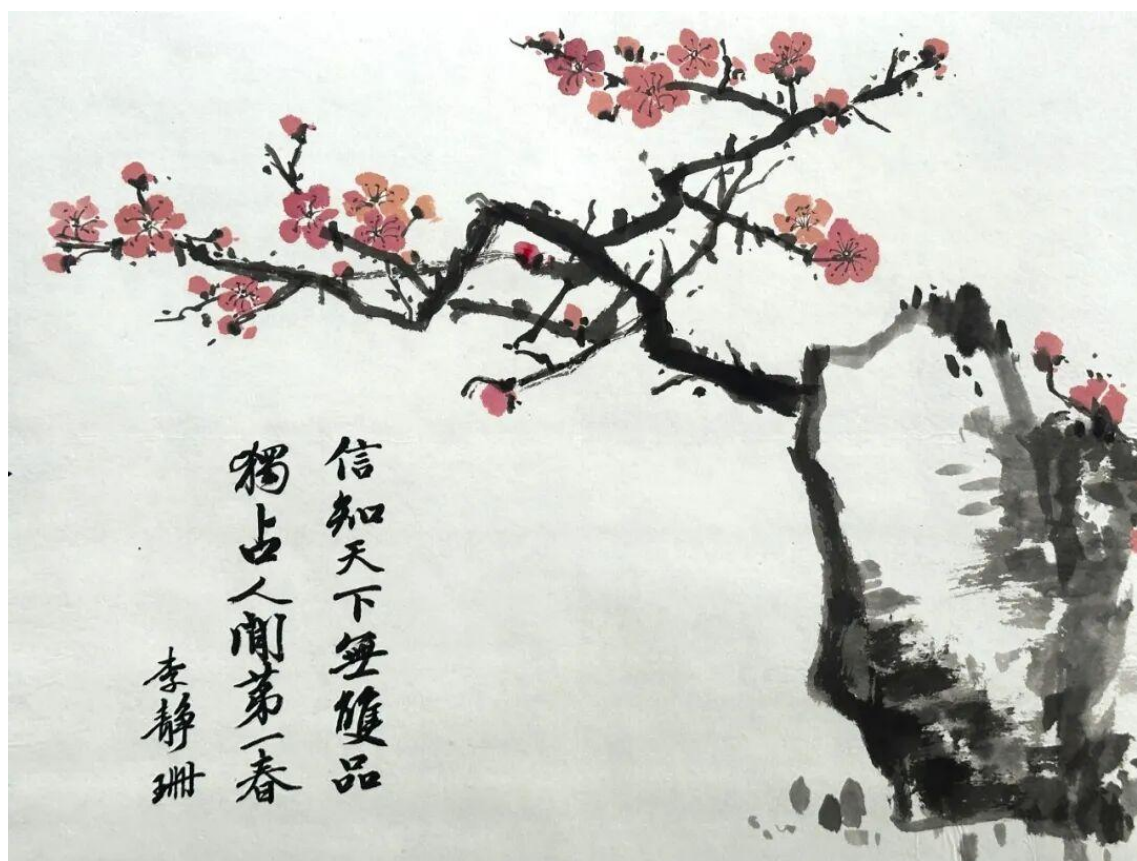 信知天下無雙品
獨占人間第一春
李靜珊